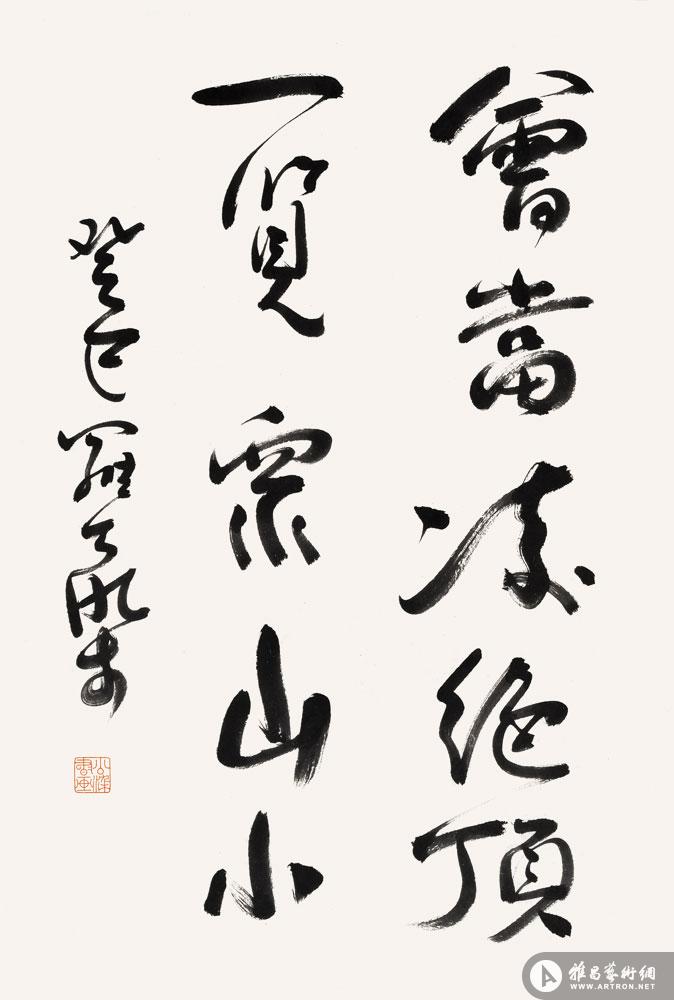 會當凌絕頂
一覽眾山小
癸巳羅
雅昌藝術網
WWW.ARTRON.NET